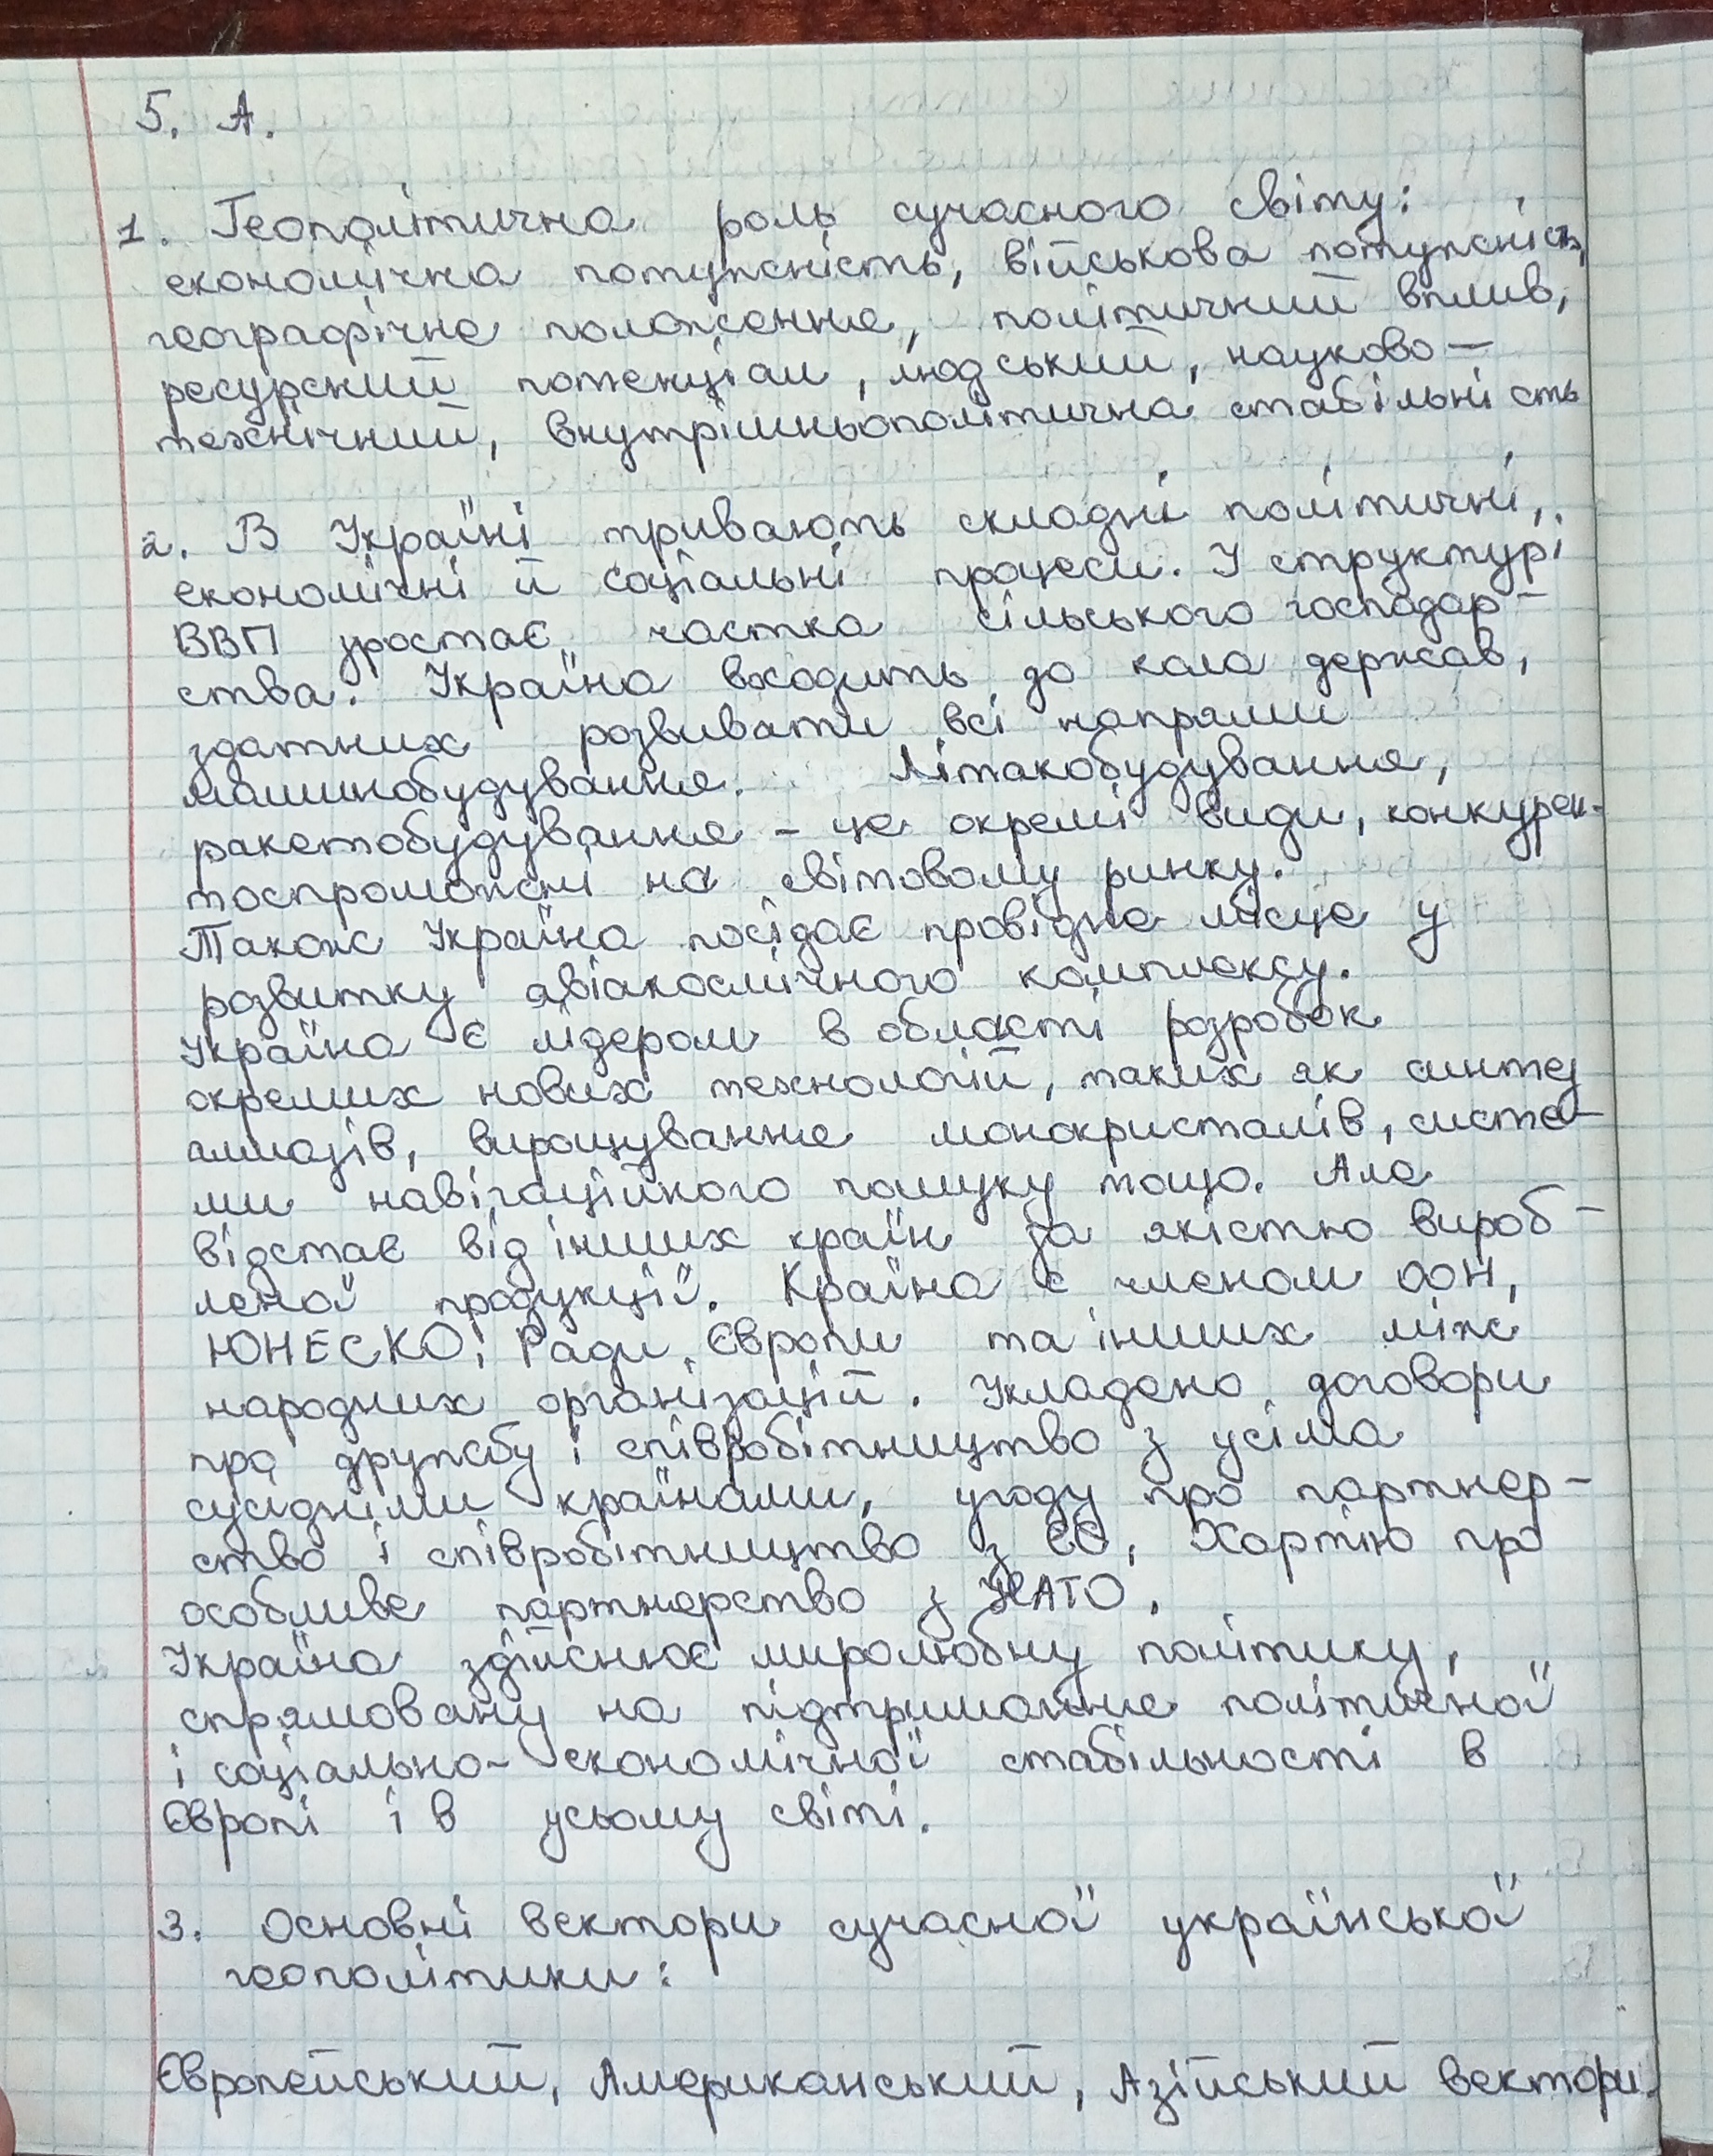 5. А.
1. Геополітична роль сучасного світу:
економічна потужність, військова потужність,
географічне положення, політичний вплив,
ресурсний потенціал, людський, науково-
технічний, внутрішньополітична стабільність
2. В Україні тривають складні політичні,
економічні й соціальні процеси. У структурі
ВВП зростає частка сільського господар-
ства. Україна входить до кола держав,
здатних розвивати всі напрями
машинобудування. Літакобудування,
ракетобудування – це окремі види, конкурен-
тоспроможні на світовому ринку.
Також Україна посідає провідне місце у
розвитку авіакосмічного комплексу.
Україна є лідером в області розробок
окремих нових технологій, таких як синтез
алмазів, вирощування монокристалів, систе-
ми навігаційного пошуку тощо. Але
відстає від інших країн за якістю вироб-
леної продукції. Країна є членом ООН,
ЮНЕСКО, Ради Європи та інших між
народних організацій. Укладено договори
про дружбу і співробітництво з усіма
сусідніми країнами, угоду про партнер-
ство і співробітництво з ЄС, Хартію про
особливе партнерство з НАТО.
Україна здійснює миролюбну політику,
спрямовану на підтримання політичної
і соціально-економічної стабільності в
Європі і в усьому світі.
3. Основні вектори сучасної української
геополітики:
Європейський, Американський, Азійський вектори.